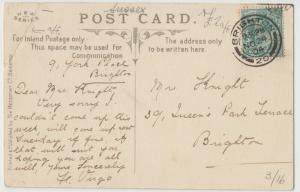 Sussex
NEW SERIES
POST CARD.
For Inland Postage only.
This space may be used for
Communication
The address only
to be written here.
9, York Road
Brighton
Dear Mrs Knight,
Very sorry I
couldn't come up this
week, will come up next
Tuesday if fine. I
that will suit you
hoping you are all
well, Yours Sincerely
Mrs Knight
39, Queen's Park Terrace
Brighton
BRIGHTON
3/16